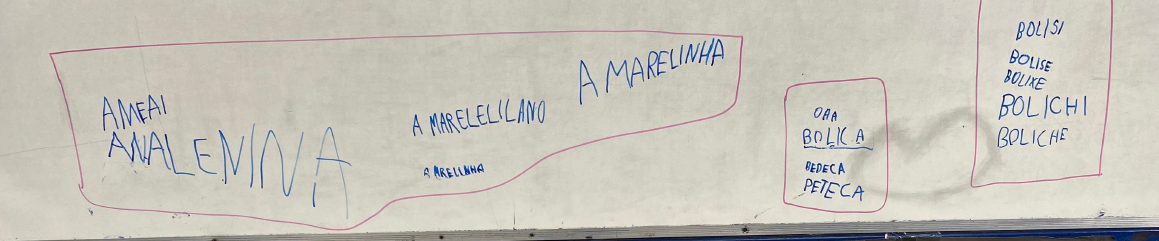 AMEAI
ANALENINA
A MARELELILANO
A MARELINHA
A MARELINHA
OAA
BOLICA
BEDECA
PETECA
BOLISI
BOLISE
BOLIXE
BOLICHI
BOLICHE